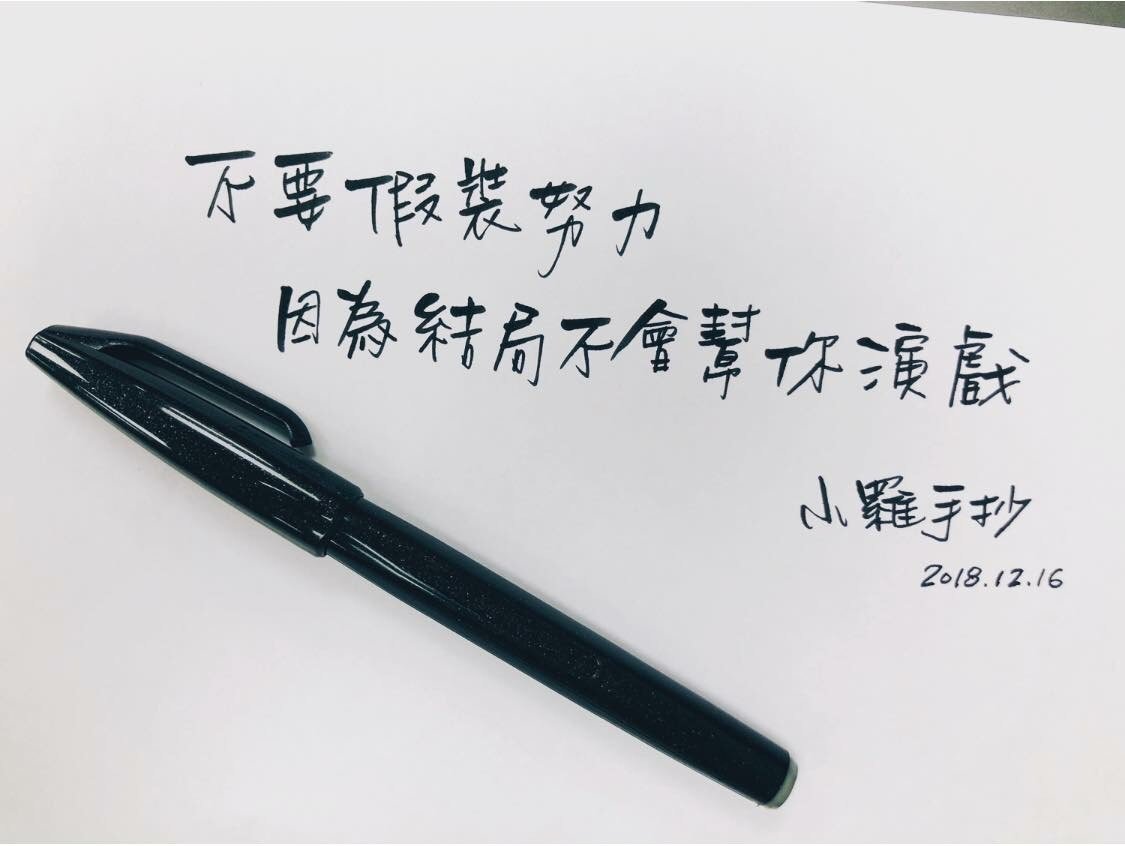 不要假裝努力
因為結局不會幫你演戲
小羅手抄
2018.12.16